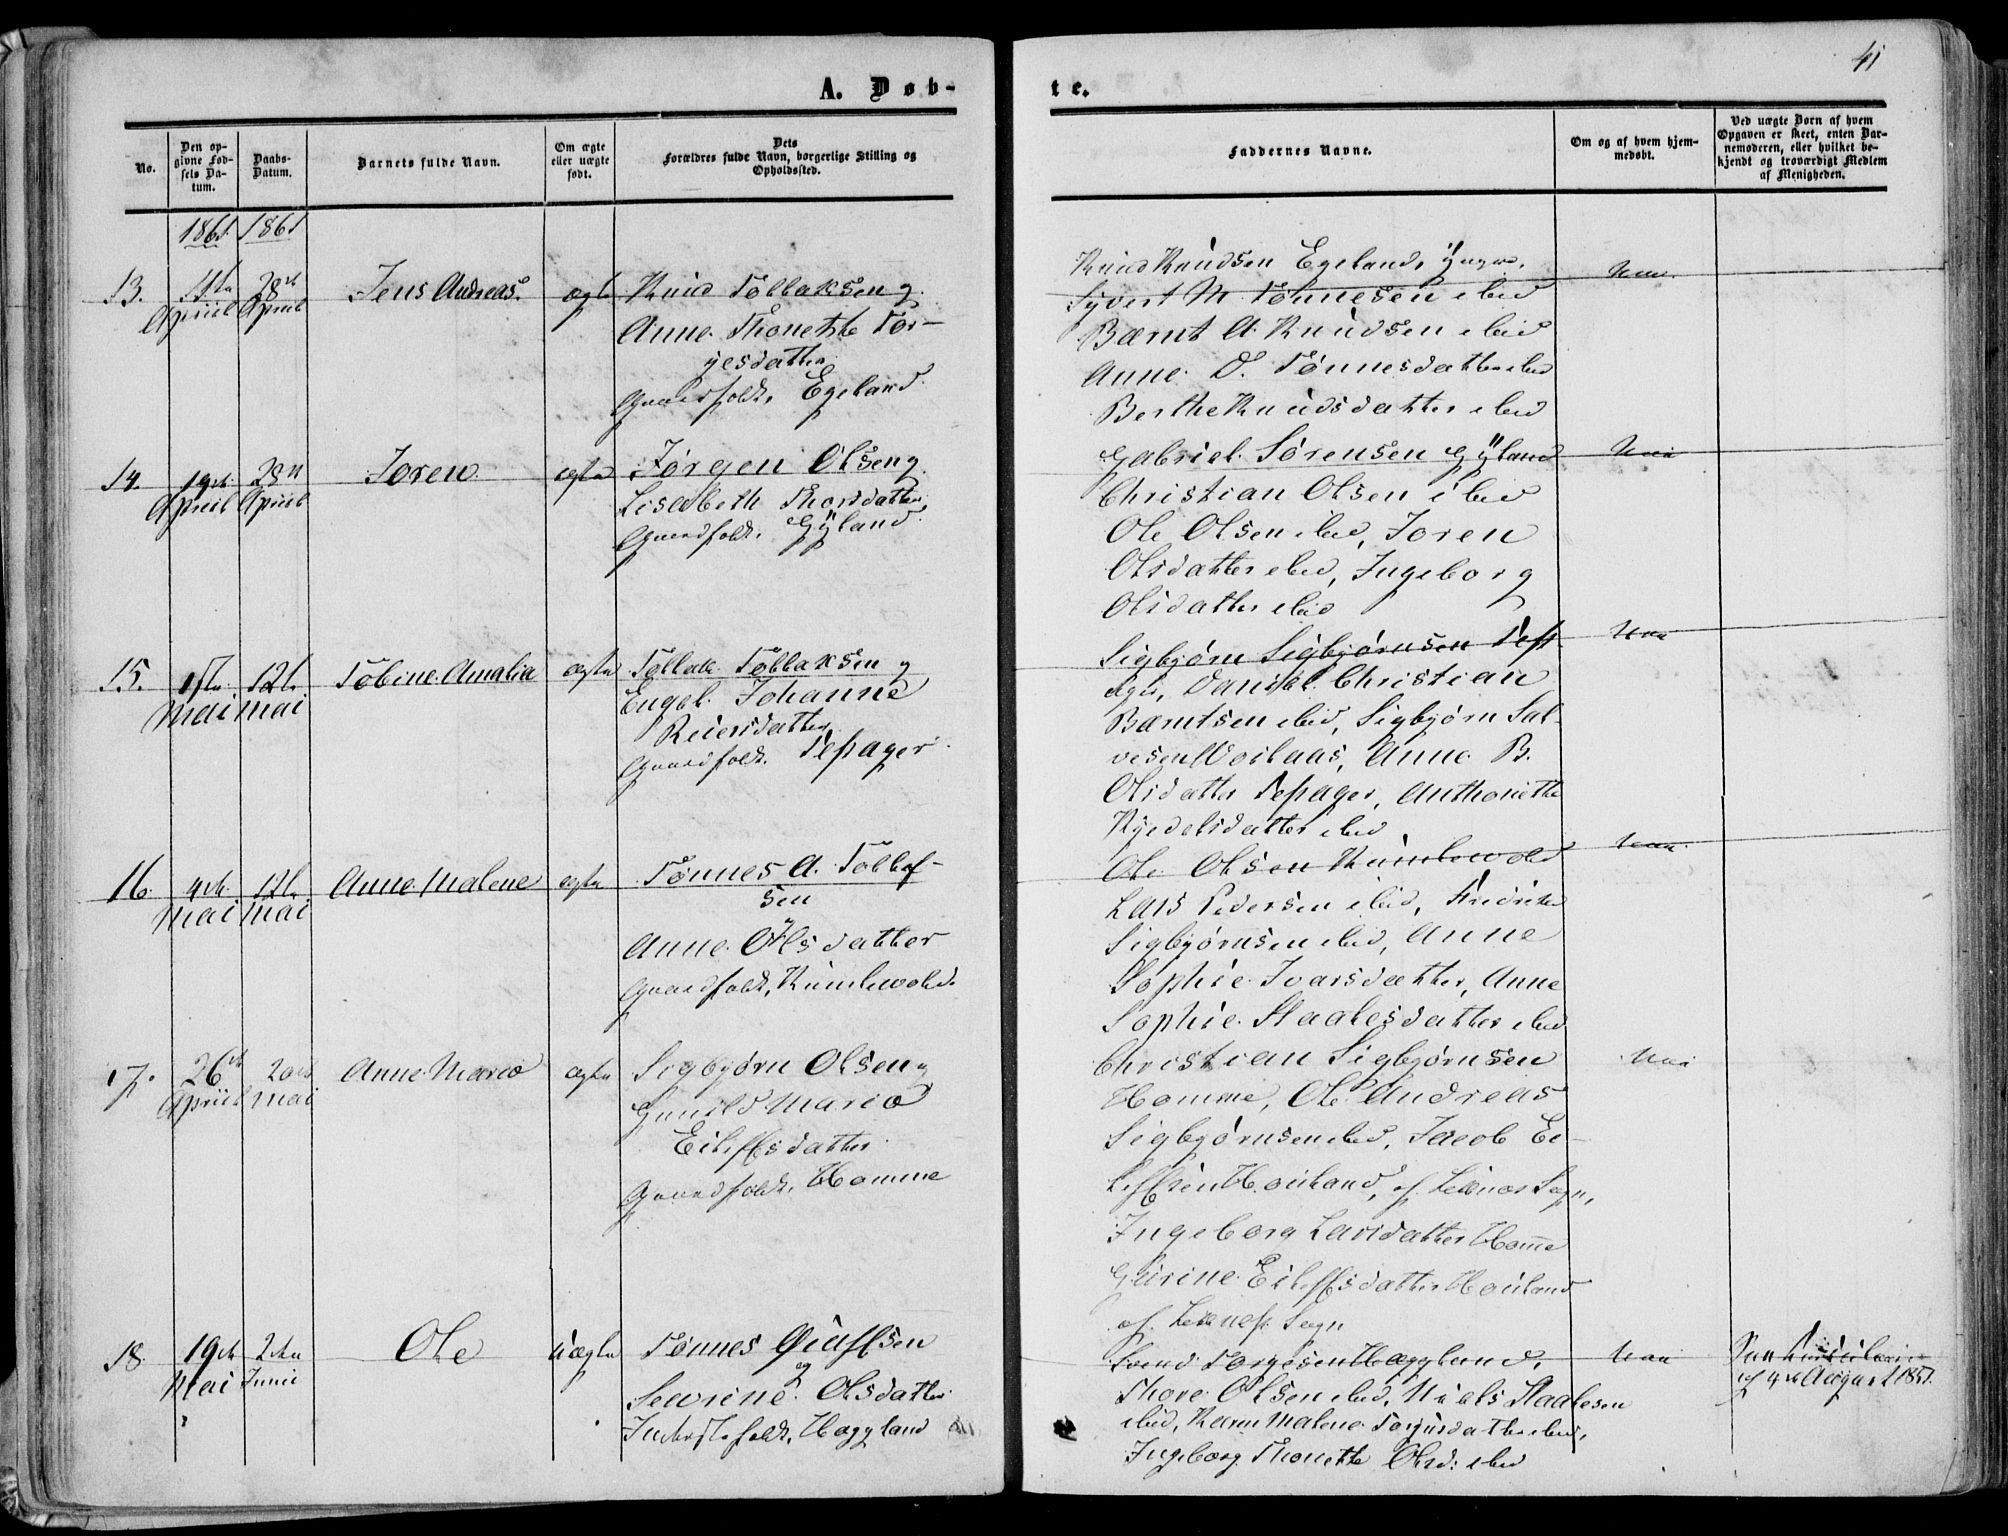 41
A. Døb-
te.
No.
Den op-
givne Fød-
sels Da-
tum.
Daabs-
Datum.
Barnets fulde Navn.
Om ægte
eller uægte
født.
Dets
Forældres fulde Navn, borgerlige Stilling og
Opholdssted.
Faddernes Navne.
Om og af hvem hjem-
medøbt.
Ved uægte Børn af hvem
Opgaven er skeet, enten Bar-
nemoderen, eller hvilket be-
kjendt og troværdigt Medlem
af Menigheden.
1861 1861
13.
April
28
April
Jens Andreas
ægte
Knud Tollaksen og
Anne Thonette Tor-
gesdatter
Gaardfolk, Egeland
Knud Knudsen Egeland, Yngre,
Syvert M. Tønnesen ibid
Bærnt A. Knudsen ibid
Anne D. Tønnesdatter ibid
Berthe Knudsdatter ibid
14.
19de
April
28
April
Joren
ægte
Jørgen Olsen og
Lisabeth Thorsdatter
Gaardfolk, Gÿland
Gabriel Sørensen Gÿland
Christian Olsen ibid
Ole Olsen ibid, Joren
Olsdatter ibid, Ingeborg
Olsdatter ibid
15.
1ste
Mai
12te
Mai
Tobine Amalia
ægte
Tollak Tollaksen og
Engel Johanne
Reiersdatter
Gaardfolk, Tepager
Sigbjørn Sigbjørnsen
Daniel Christian
Bærntsen ibid, Sigbjørn Sal-
vesen Vorlaas, Anne B.
Olsdatter Tepager, Anthonette
Kjedelsdatter ibid
16.
4de
Mai
12te
Mai
Anne Malene
ægte
Tønnes A. Tollef-
sen
Anne Olsdatter
Gaardfolk, Kumlevold
Ole Olsen Kumlevold
Lars Pedersen ibid, Fredrik
Sigbjørnsen ibid, Anne
Sophie Ivarsdatter, Anne
Sophie Staalesdatter ibid
17.
26de
April
20de
Mai
Anne Marie
ægte
Sigbjørn Olsen og
Gunild Maria
Eileffsdatter
Gaardfolk, Homme
Christian Sigbjørnsen
Homme, Ole Andreas
Sigbjørnsen ibid, Jacob Ei-
leffsen Houland, af Sogn,
Ingeborg Larsdatter Home
Gurine Eileffsdatter Houland
af Sogn
Nei
18.
19de
Mai
2den
Junii
Ole
uægte
Tønnes
og
Sevrine Olsdatter
Inderstefolk, Hægland
Svend Torgesen Hægland,
Thore Olsen ibid, Niels Staalesen
ibid, Karen Malene ibid,
Ingeborg Thonette Olsd: ibid
af 4de August 1851.